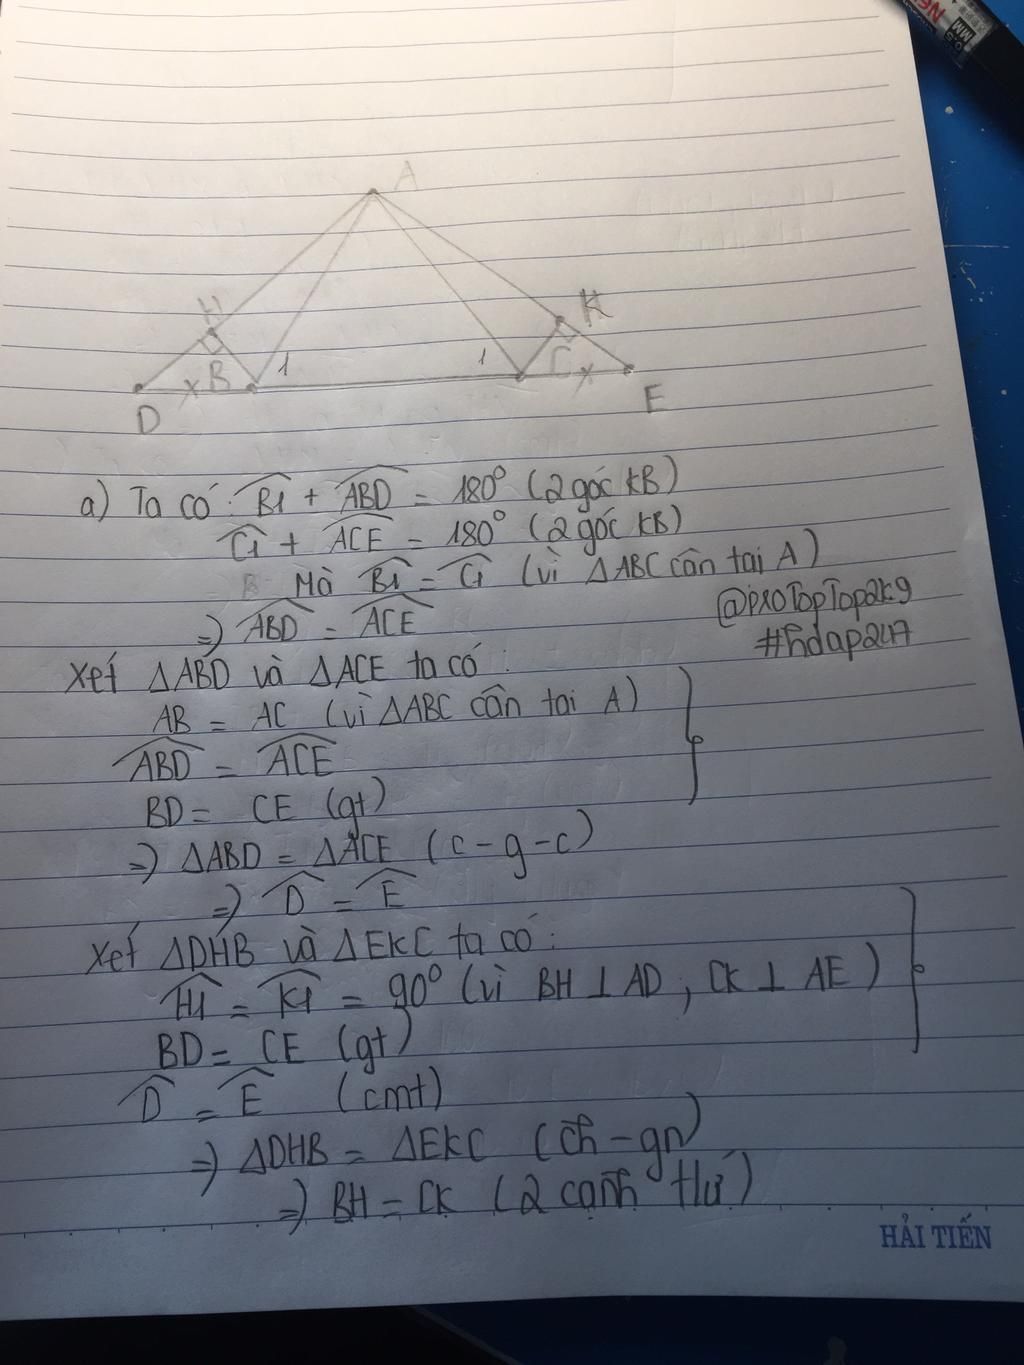 A
H
K
1
1
B
C
D
E
a) Ta có: B1 + ABD = 180° (2 góc kB)
C1 + ACE = 180° (2 góc kB)
Mà B1 = C1 (vì ΔABC cân tại A)
=) ABD = ACE
@proTopTop2k9
#hdap247
Xét ΔABD và ΔACE ta có:
AB = AC (vì ΔABC cân tại A)
ABD = ACE
BD = CE (gt)
=) ΔABD = ΔACE (c-g-c)
=) D = E
Xét ΔDHB và ΔEKC ta có:
H1 = K1 = 90° (vì BH ⊥ AD; CK ⊥ AE)
BD = CE (gt)
D = E (cmt)
=) ΔDHB = ΔEKC (ch-gn)
=) BH = CK (2 cạnh tứ)
HẢI TIẾN